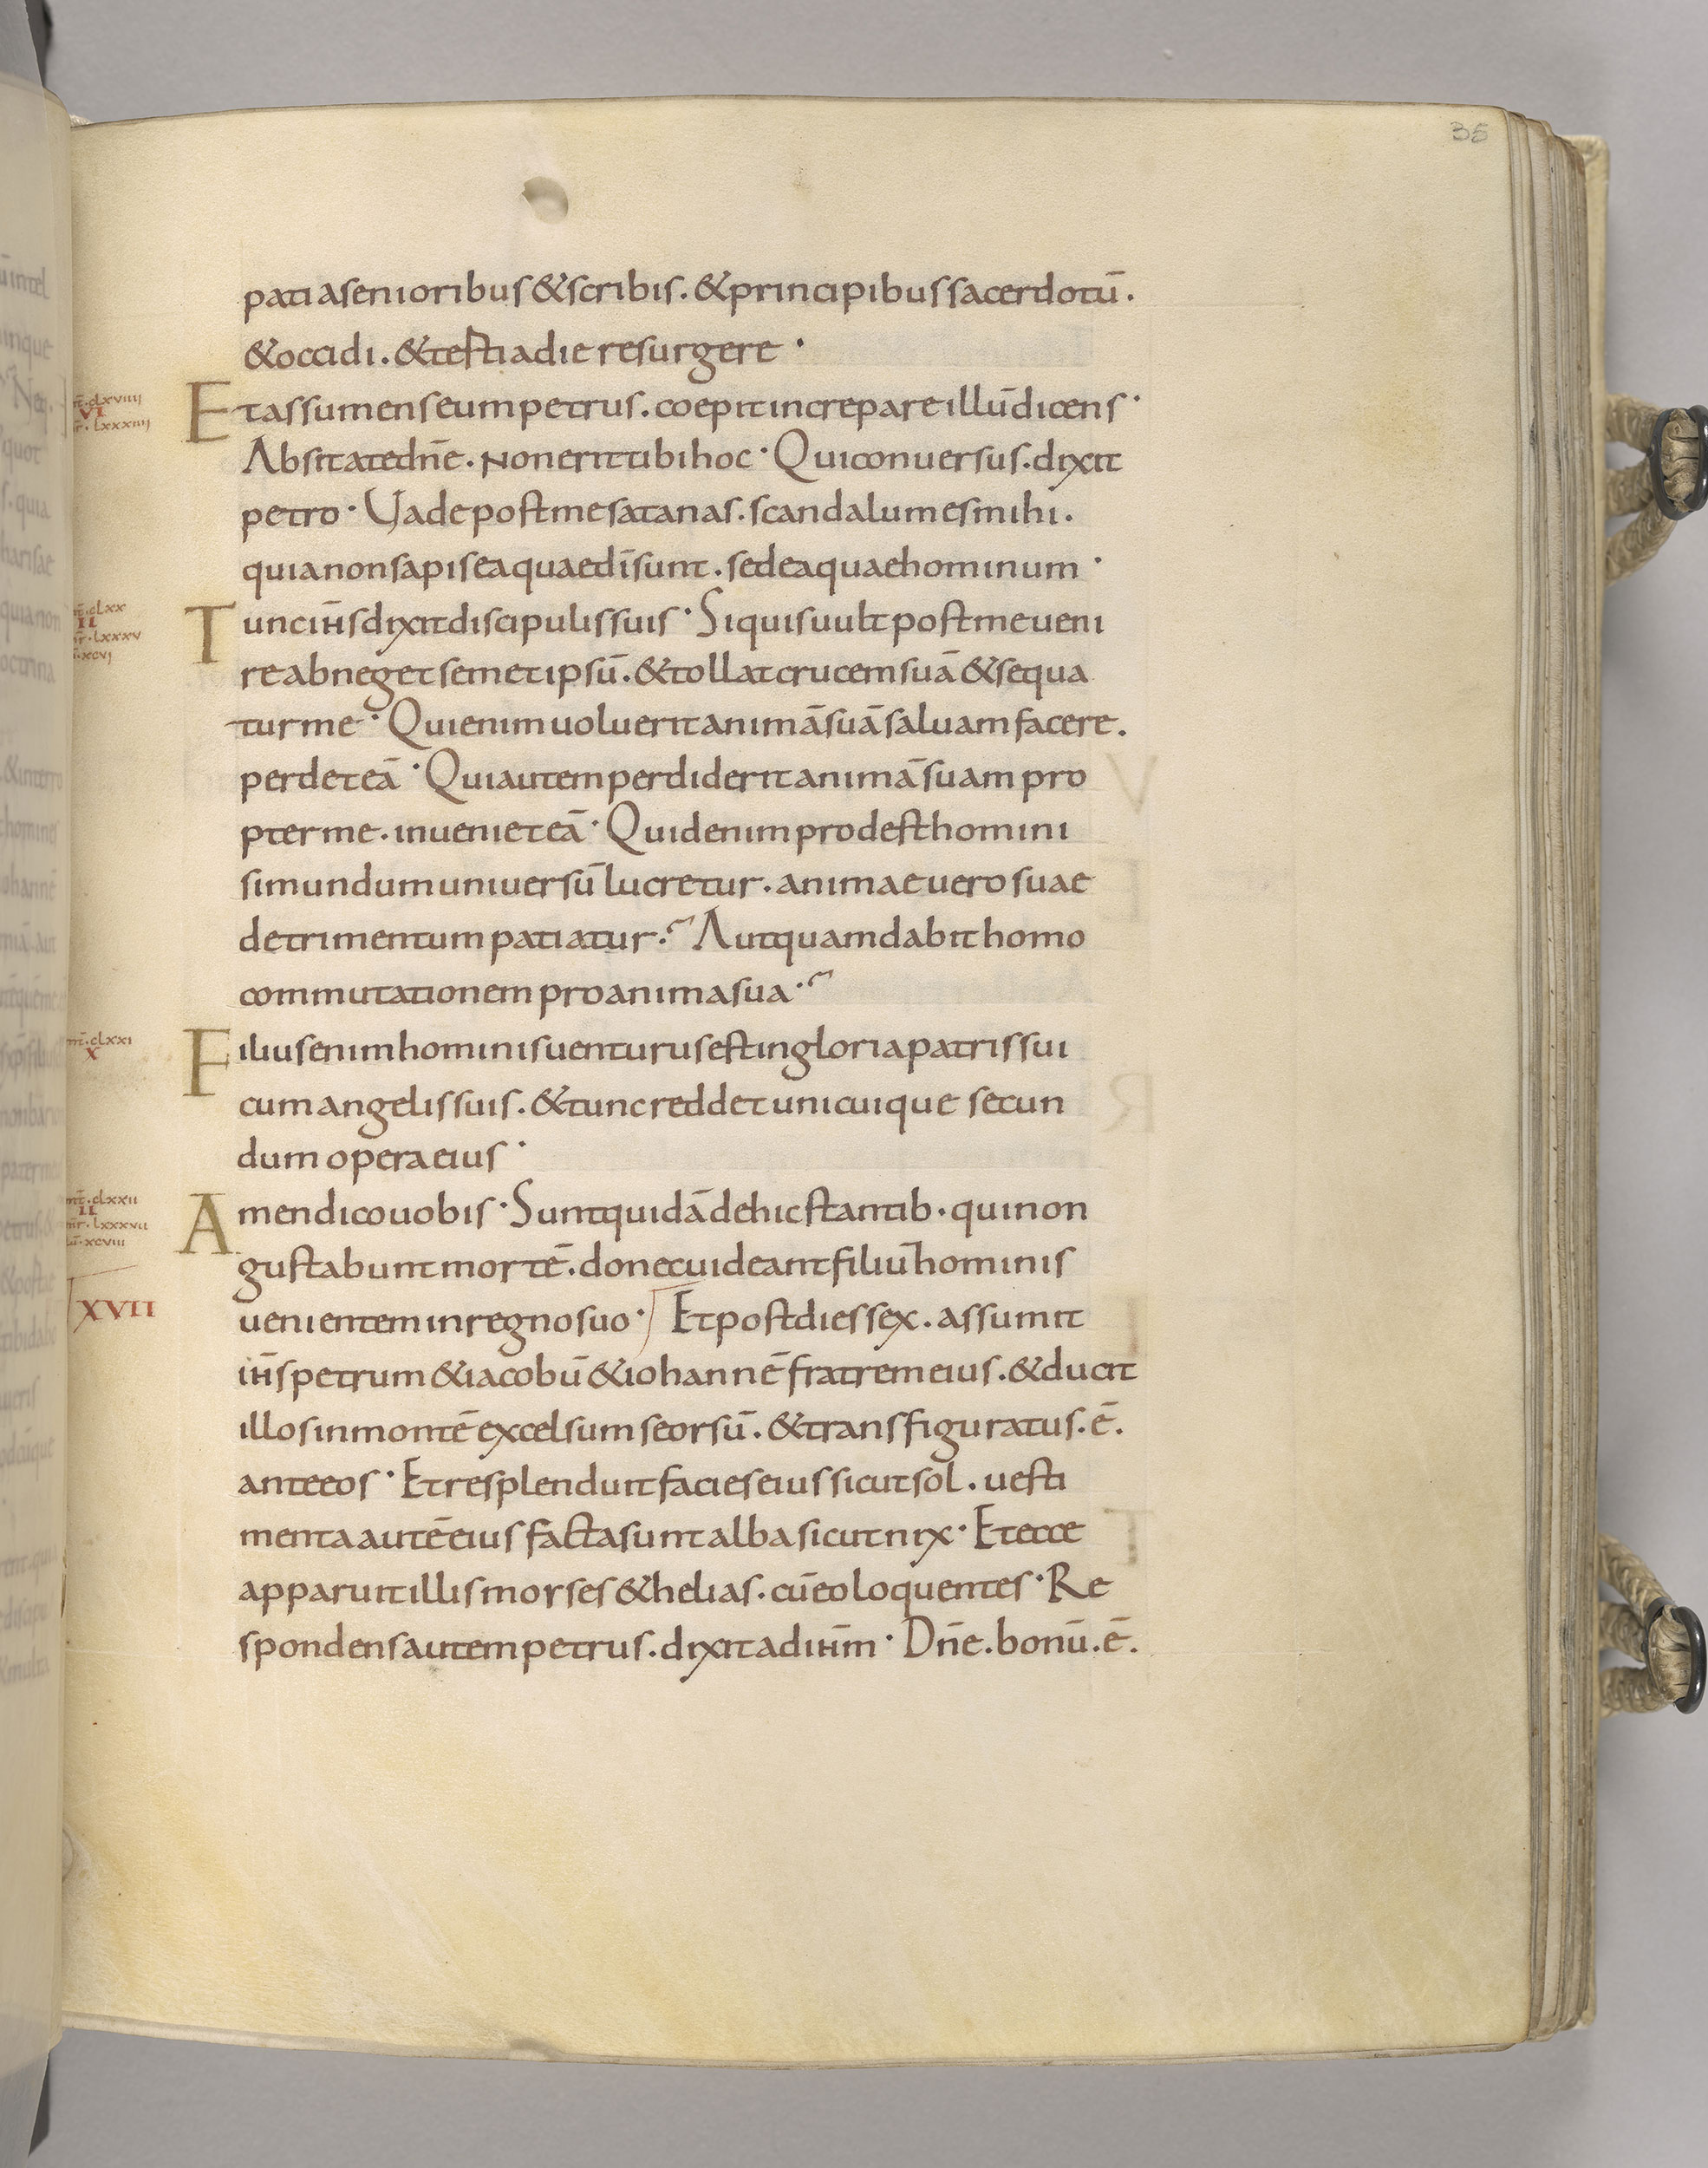 35
pati a senioribus & scribis. & principibus sacerdotū.
& occidi. & testia die resurgere·
mt̄.clxviiii
VI
mr̄.lxxxiiii
Et assumens eum petrus. coepit increpare illū dicens·
Absit a te dn̄e. Non erit tibi hoc· Qui conuersus. dixit
petro· Uade post me satanas. scandalum es mihi.
quia non sapis ea quae dī sunt. sed ea quae hominum·
mt̄.clxx
II
mr̄.lxxxv
lū.xcvi
Tunc ih̄s dixit discipulis suis· Si quis uult post me ueni
re abneget semetipsū. & tollat crucem suā & sequa
tur me· Qui enim uoluerit animā suā saluam facere.
perdet eā· Qui autem perdiderit animā suam pro
pter me. inueniet eā· Quid enim prodest homini
si mundum uniuersū lucretur. animae uero suae
detrimentum patiatur.? Aut quam dabit homo
commutationem pro anima sua·?
mt̄.clxxi
X
Filius enim hominis uenturus est in gloria patris sui
cum angelis suis. & tunc reddet unicuique secun
dum opera eius·
mt̄.clxxii
II
mr̄.lxxxvii
lū.xcviii
Amen dico uobis· Sunt quidā de hic stantib. qui non
gustabunt mortē. donec uideant filiū hominis
XVII
uenientem in regno suo· Et post dies sex. assumit
ih̄s petrum & iacobū & iohannē fratrem eius. & ducit
illos in montē excelsum seorsū. & transfiguratus. ē.
ante eos· Et resplenduit facies eius sicut sol. uesti
menta autē eius facta sunt alba sicut nix· Et ecce
apparuit illis morses & helias. cū eo loquentes· Re
spondens autem petrus. dixit ad ih̄m· Dn̄e. bonū. ē.